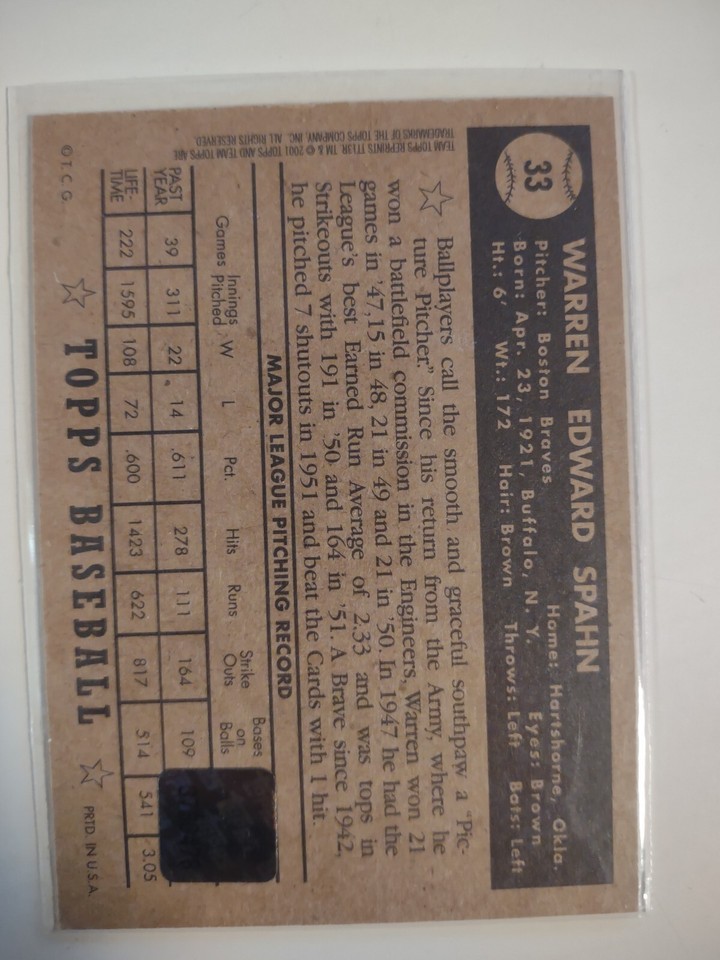 33
WARREN EDWARD SPAHN
Pitcher: Boston Braves Home: Hartshorne, Okla.
Born: Apr. 23, 1921, Buffalo, N. Y. Eyes: Brown
Ht.: 6' Wt.: 172 Hair: Brown Throws: Left Bats: Left
Ballplayers call the smooth and graceful southpaw a "Pic-
ture Pitcher." Since his return from the Army, where he
won a battlefield commission in the Engineers, Warren won 21
games in '47, 15 in 48, 21 in 49 and 21 in '50. In 1947 he had the
League's best Earned Run Average of 2.33 and was tops in
Strikeouts with 191 in '50 and 164 in '51. A Brave since 1942,
he pitched 7 shutouts in 1951 and beat the Cards with 1 hit.
TEAM TOPPS REPRINTS TT13R. TM & © 2001 TOPPS AND TEAM TOPPS ARE
TRADEMARKS OF THE TOPPS COMPANY, INC. ALL RIGHTS RESERVED.
MAJOR LEAGUE PITCHING RECORD
Games Innings Pitched W L Pct. Hits Runs Strike Outs Bases on Balls
PAST YEAR 39 311 22 14 .611 278 111 164 109
LIFE-TIME 222 1595 108 72 .600 1423 622 817 514 541 3.05
© T. C. G. TOPPS BASEBALL PRTD. IN U.S.A.